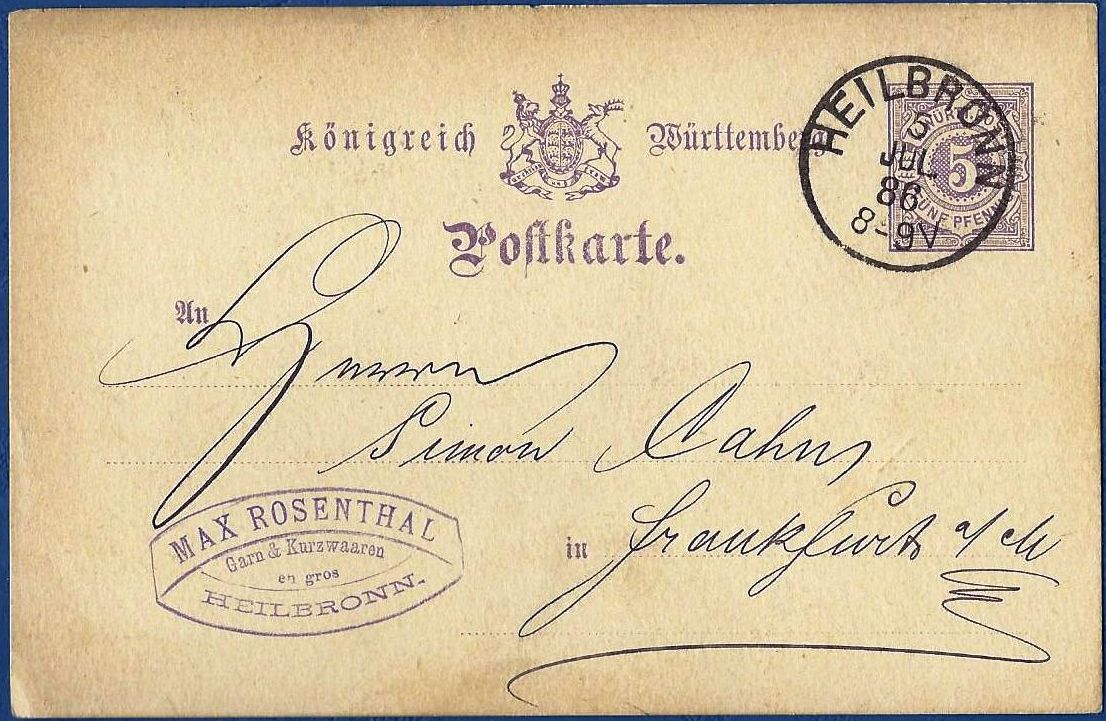 Königreich Württemberg
Postkarte.
HEILBRONN
5
JUL
86
8-9V
5
FÜNF PFENNIG
An Herrn
Simon Cahn
in Frankfurt a/M
MAX ROSENTHAL
Garn & Kurzwaaren
en gros
HEILBRONN.